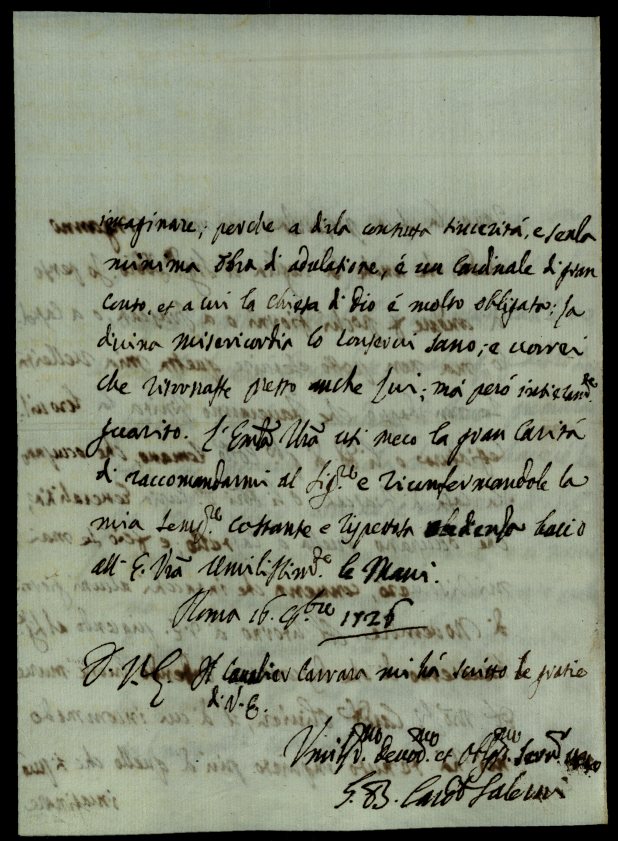 imaginare; perche a dirla con tutta sincerità, e senza
minima obra di adulatione, é un Cardinale di gran
conto, et a cui la chiesa di Dio é molto obligata: la
divina misericordia lo conservi sano; e vorrei
che ritornasse presto anche lui; má peró intieram.te
guarito. L'Em.za Vrã usi meco la gran carità
di raccomandarmi al Sig.re e riconfermandole la
mia semp.re costante e rispettosa obedienza bacio
all' E. Vrã umilissim.te le Mani.
Roma 16. 9bre 1726
D. V. E. Il Cavalier Carrara mi há scritto le gratie
di V. E.
Umiliss.mo devot.mo et Obblig.mo Serv.re vero
G. B. Card. Salerni